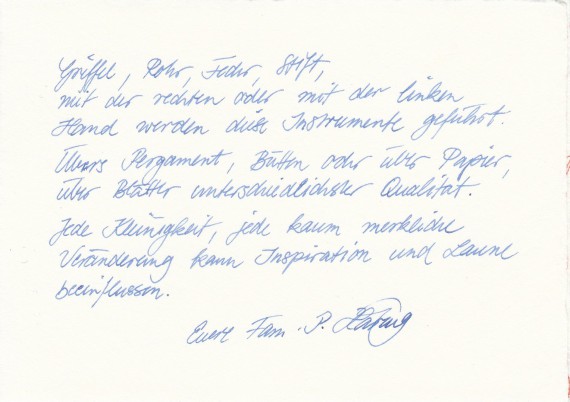 Griffel, Rohr, Feder, Stift,
mit der rechten oder mit der linken
Hand werden diese Instrumente geführt.
Übers Pergament, Bütten oder über Papier,
über Blätter unterschiedlichster Qualität.
Jede Kleinigkeit, jede kaum merkliche
Veränderung kann Inspiration und Laune
beeinflussen.
Eure Fam. P.